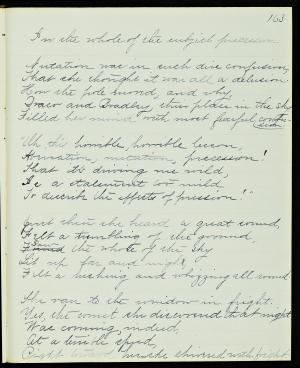 163
In the whole of the subject precession
Nutation was in such dire confusion,
That she thought it was all a delusion.
How the pole moved, and why
Draco and Bradley, their place in the sky
Filled her mind with most fearful confusion
Oh this horrible, horrible lesson,
Aberration, nutation, precession!
That it's driving me wild,
Is a statement too mild
To describe the effects of precession!
And then she heard a great sound,
Felt a trembling of the ground,
Found the whole of the sky
Lit up far and nigh
Felt a rushing and whizzing all round
She ran to the window in fright.
Yes, the comet she discovered that night
Was coming, indeed,
At a terrible speed,
she shivered with fright